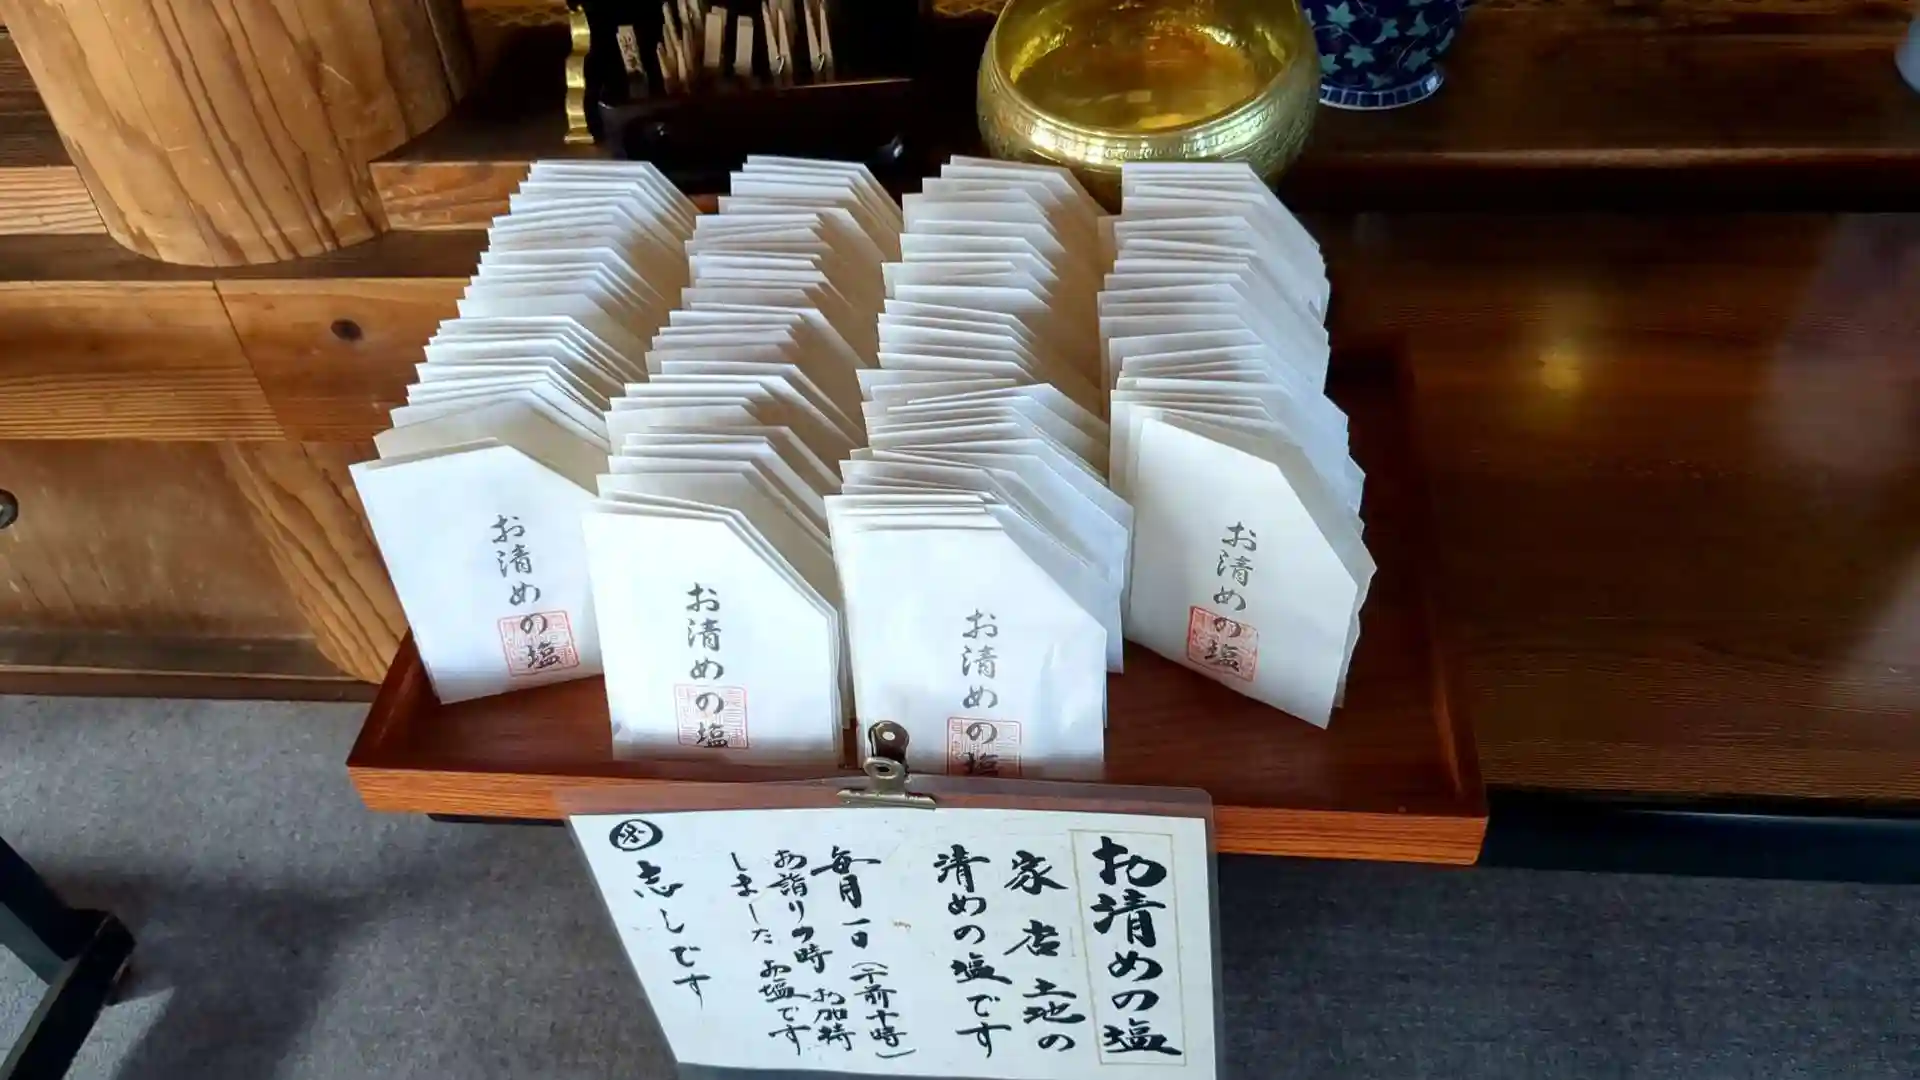 お清めの塩
お清めの塩
お清めの塩
お清めの塩
お清めの塩
家 店 土地の
清めの塩です
毎月一日(午前十時)
お詣りの時 お加持
しました お塩です
志しです